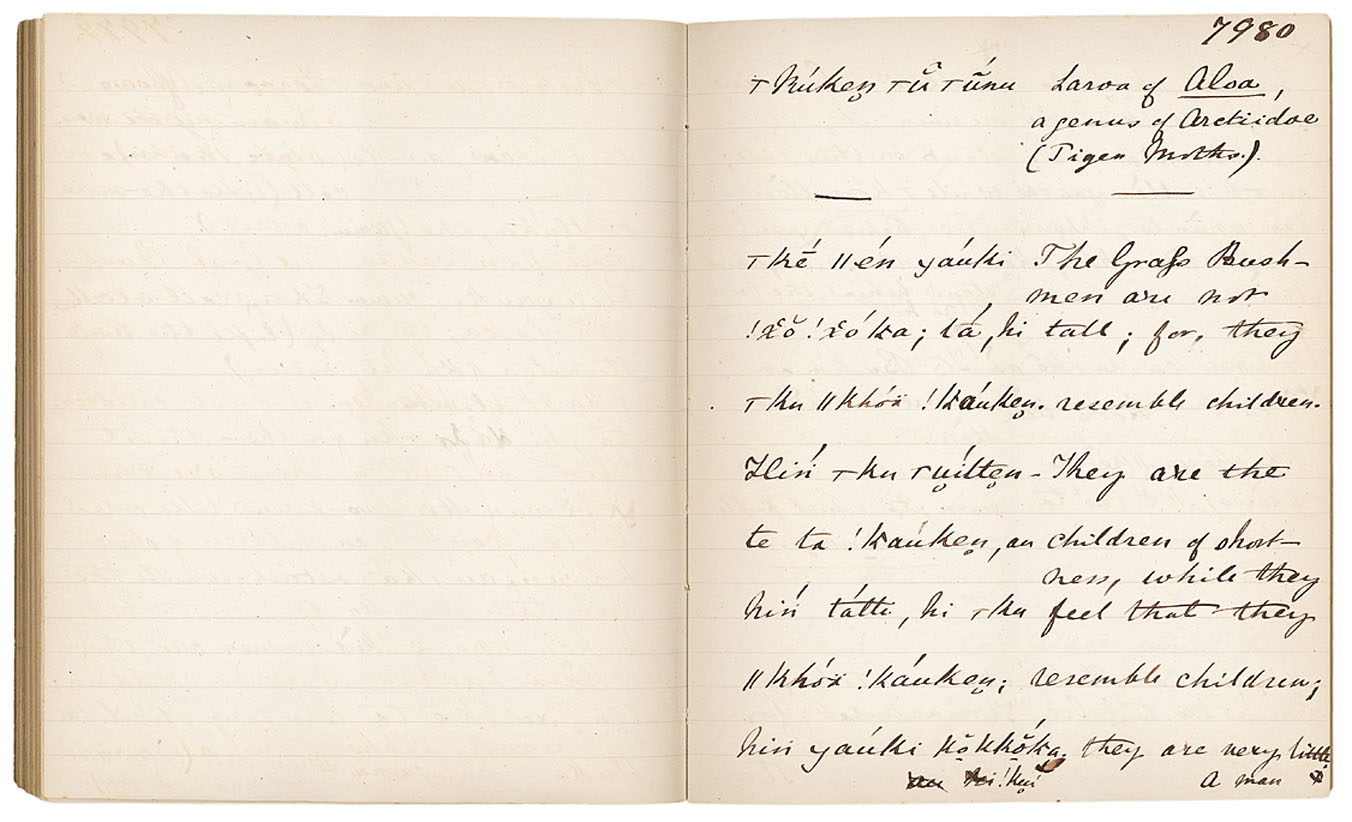 7980
ꞇkúken̥ ꞇŭ ꞇŭ́nu Larva of Aloa,
a genus of Arctiidae
(Tiger Moths.).
ꞇké̄ ǁén yáuki The Grass Bush-
men are not
!x̆ŏ !x̆óka; tá, hi tall; for, they
ꞇku ǁkhóä !káuken̥. resemble children.
Hiń ꞇku ꞇu̥ítten̥- They are the
te ta !kaúken̥, au children of short-
ness, while they
hiń tátti, hi ꞇku feel that they
ǁkhóä !káuken̥; resemble children;
hiń yaúki kŏ̱kkŏ́ka. they are very little.
!ku̥í A man